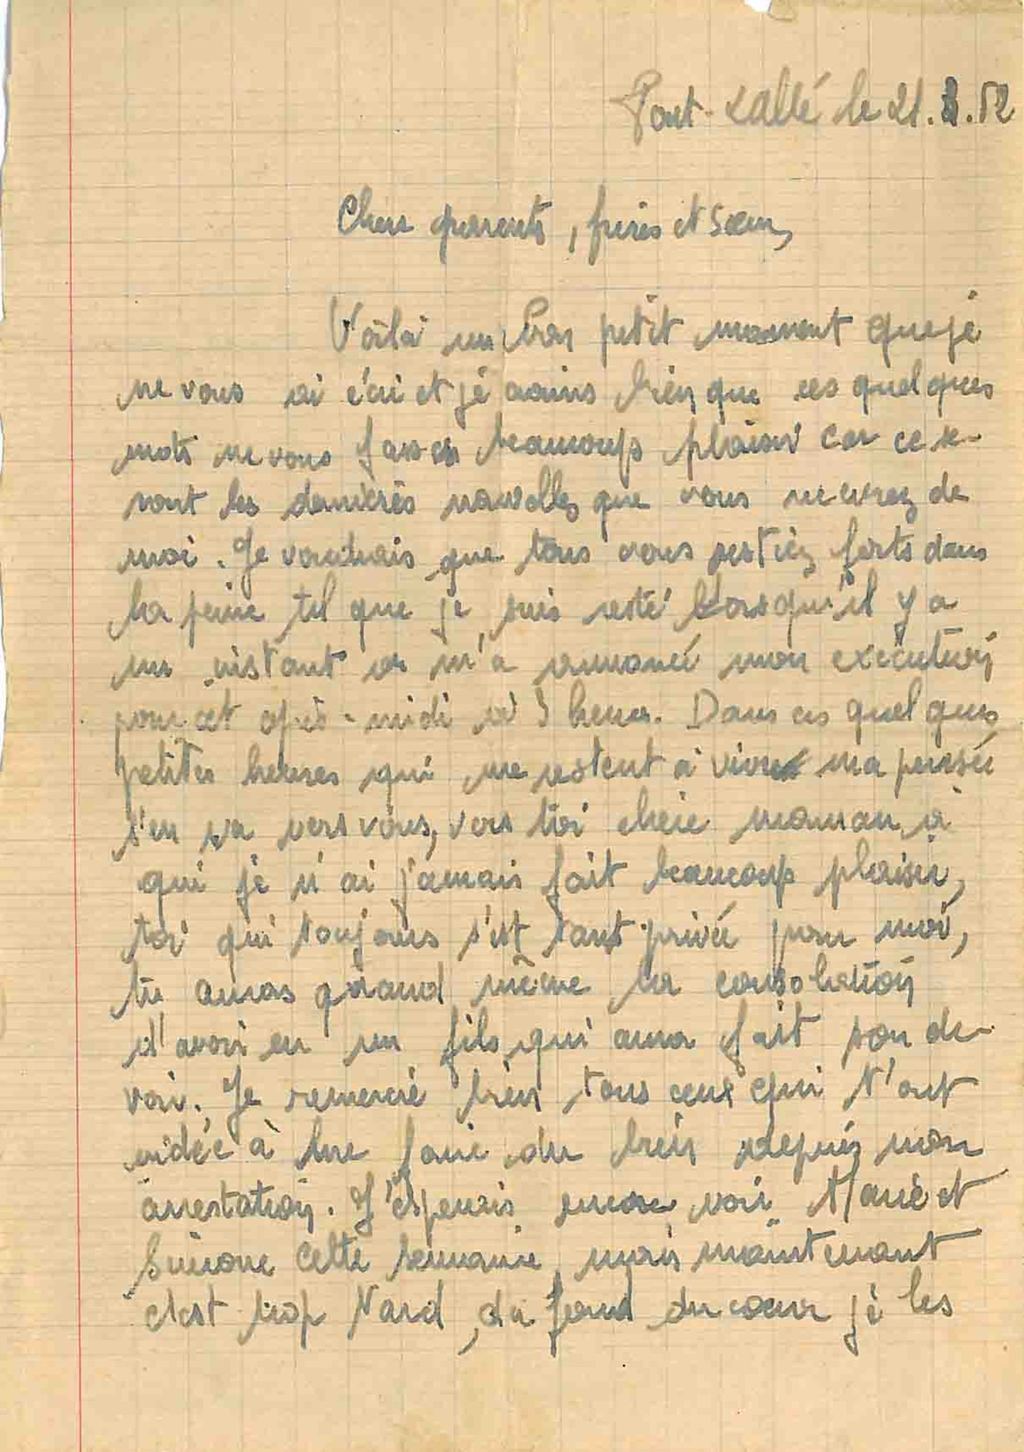 Port-Louis le 21.3.42
Chers parents, frères et sœur,
Voilà un bon petit moment que je
ne vous ai écri et je crains bien que ces quelques
mots ne vous fasse beaucoups plaisir car ce se-
ront les dernières nouvelles que vous recevrez de
moi. Je voudrais que tous vous restiez forts dans
la peine tel que je suis resté lorsqu'il y a
un instant on m'a annoncé mon exécution
pour cet après-midi à 3 heures. Dans ces quelques
petites heures qui me restent à vivre ma pensée
s'en va vers vous, vers toi chère maman, à
qui je n'ai jamais fait beaucoup plaisir,
toi qui toujours s'est tant privée pour moi,
tu auras quand même la consolation
d'avoir eu un fils qui aura fait son de-
voir. Je remercie bien tous ceux qui t'ont
aidée à me faire du bien depuis mon
arrestation. J'espérais encore voir et
Simone cette semaine, mais maintenant
c'est trop tard, du fond du cœur je les